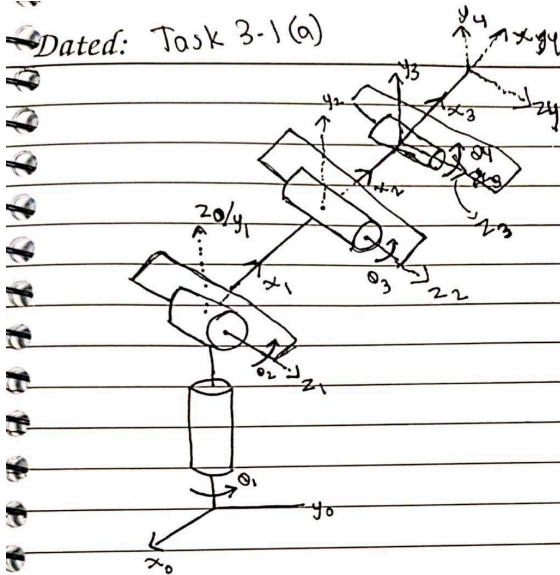 Dated: Task 3-1(a)
y4
x4
z4
y3
x3
y2
x2
θ4
z3
z0/y1
x1
θ3
z2
θ2
z1
θ1
y0
x0